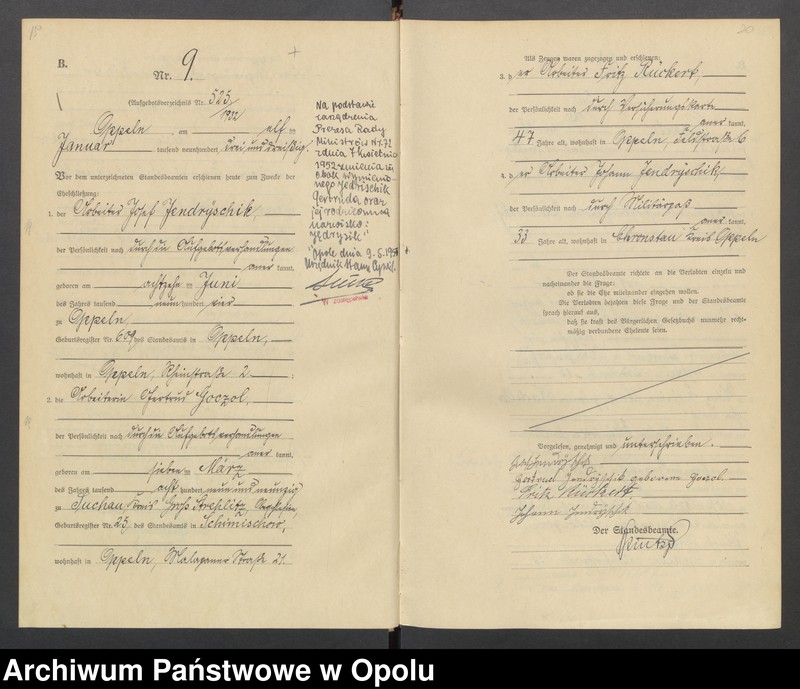 B.
Nr. 9.
(Aufgebotsverzeichnis Nr. 525/1932
Oppeln, am elf ten
Januar tausend neunhundert drei und dreißig.
Vor dem unterzeichneten Standesbeamten erschienen heute zum Zwecke der
Eheschließung:
1. der Arbeiter Josef Jendryschik,
der Persönlichkeit nach durch die Aufgebotsverhandlungen
aner kannt,
geboren am achtzehn ten Juni
des Jahres tausend neunhundert vier
zu Oppeln,
Geburtsregister Nr. 609 des Standesamts in Oppeln,
wohnhaft in Oppeln, Rheinstraße 2 ;
2. die Arbeiterin Gertrud Goczol,
der Persönlichkeit nach durch die Aufgebotsverhandlungen
aner kannt,
geboren am sieben ten März
des Jahres tausend acht hundert neun und neunzig
zu Suchau, Kreis Groß Strehlitz,
Geburtsregister Nr. 25, des Standesamts in Schimischow,
wohnhaft in Oppeln, Malapaner Straße 21.
Na podstawie
zarządzenia
Prezesa Rady
Ministrów Nr. 72
z dnia 7 kwietnia
1952 zmienia się
obok wymienio-
nego Jedrischik
Gertruda oraz
jej rodzinie na
nazwisko:
"Jędrysik"
Opole dnia 9.5.
Urzędnik Stanu Cywil.
20
Als Zeugen waren zugezogen und erschienen:
3. der Arbeiter Fritz Rückert,
der Persönlichkeit nach durch Versicherungskarte
aner kannt,
47 Jahre alt, wohnhaft in Oppeln, Feldstraße 6
4. der Arbeiter Johann Jendryschik,
der Persönlichkeit nach durch Militärpaß
aner kannt,
33 Jahre alt, wohnhaft in Chronstau Kreis Oppeln
Der Standesbeamte richtete an die Verlobten einzeln und
nacheinander die Frage:
ob sie die Ehe miteinander eingehen wollen.
Die Verlobten bejahten diese Frage und der Standesbeamte
sprach hierauf aus,
daß sie kraft des Bürgerlichen Gesetzbuchs nunmehr recht-
mäßig verbundene Eheleute seien.
Vorgelesen, genehmigt und unterschrieben.
Josef Jendryschik
Gertrud Jendryschik geborene Goczol.
Fritz Rückert
Johann Jendryschik
Der Standesbeamte.
Archiwum Państwowe w Opolu